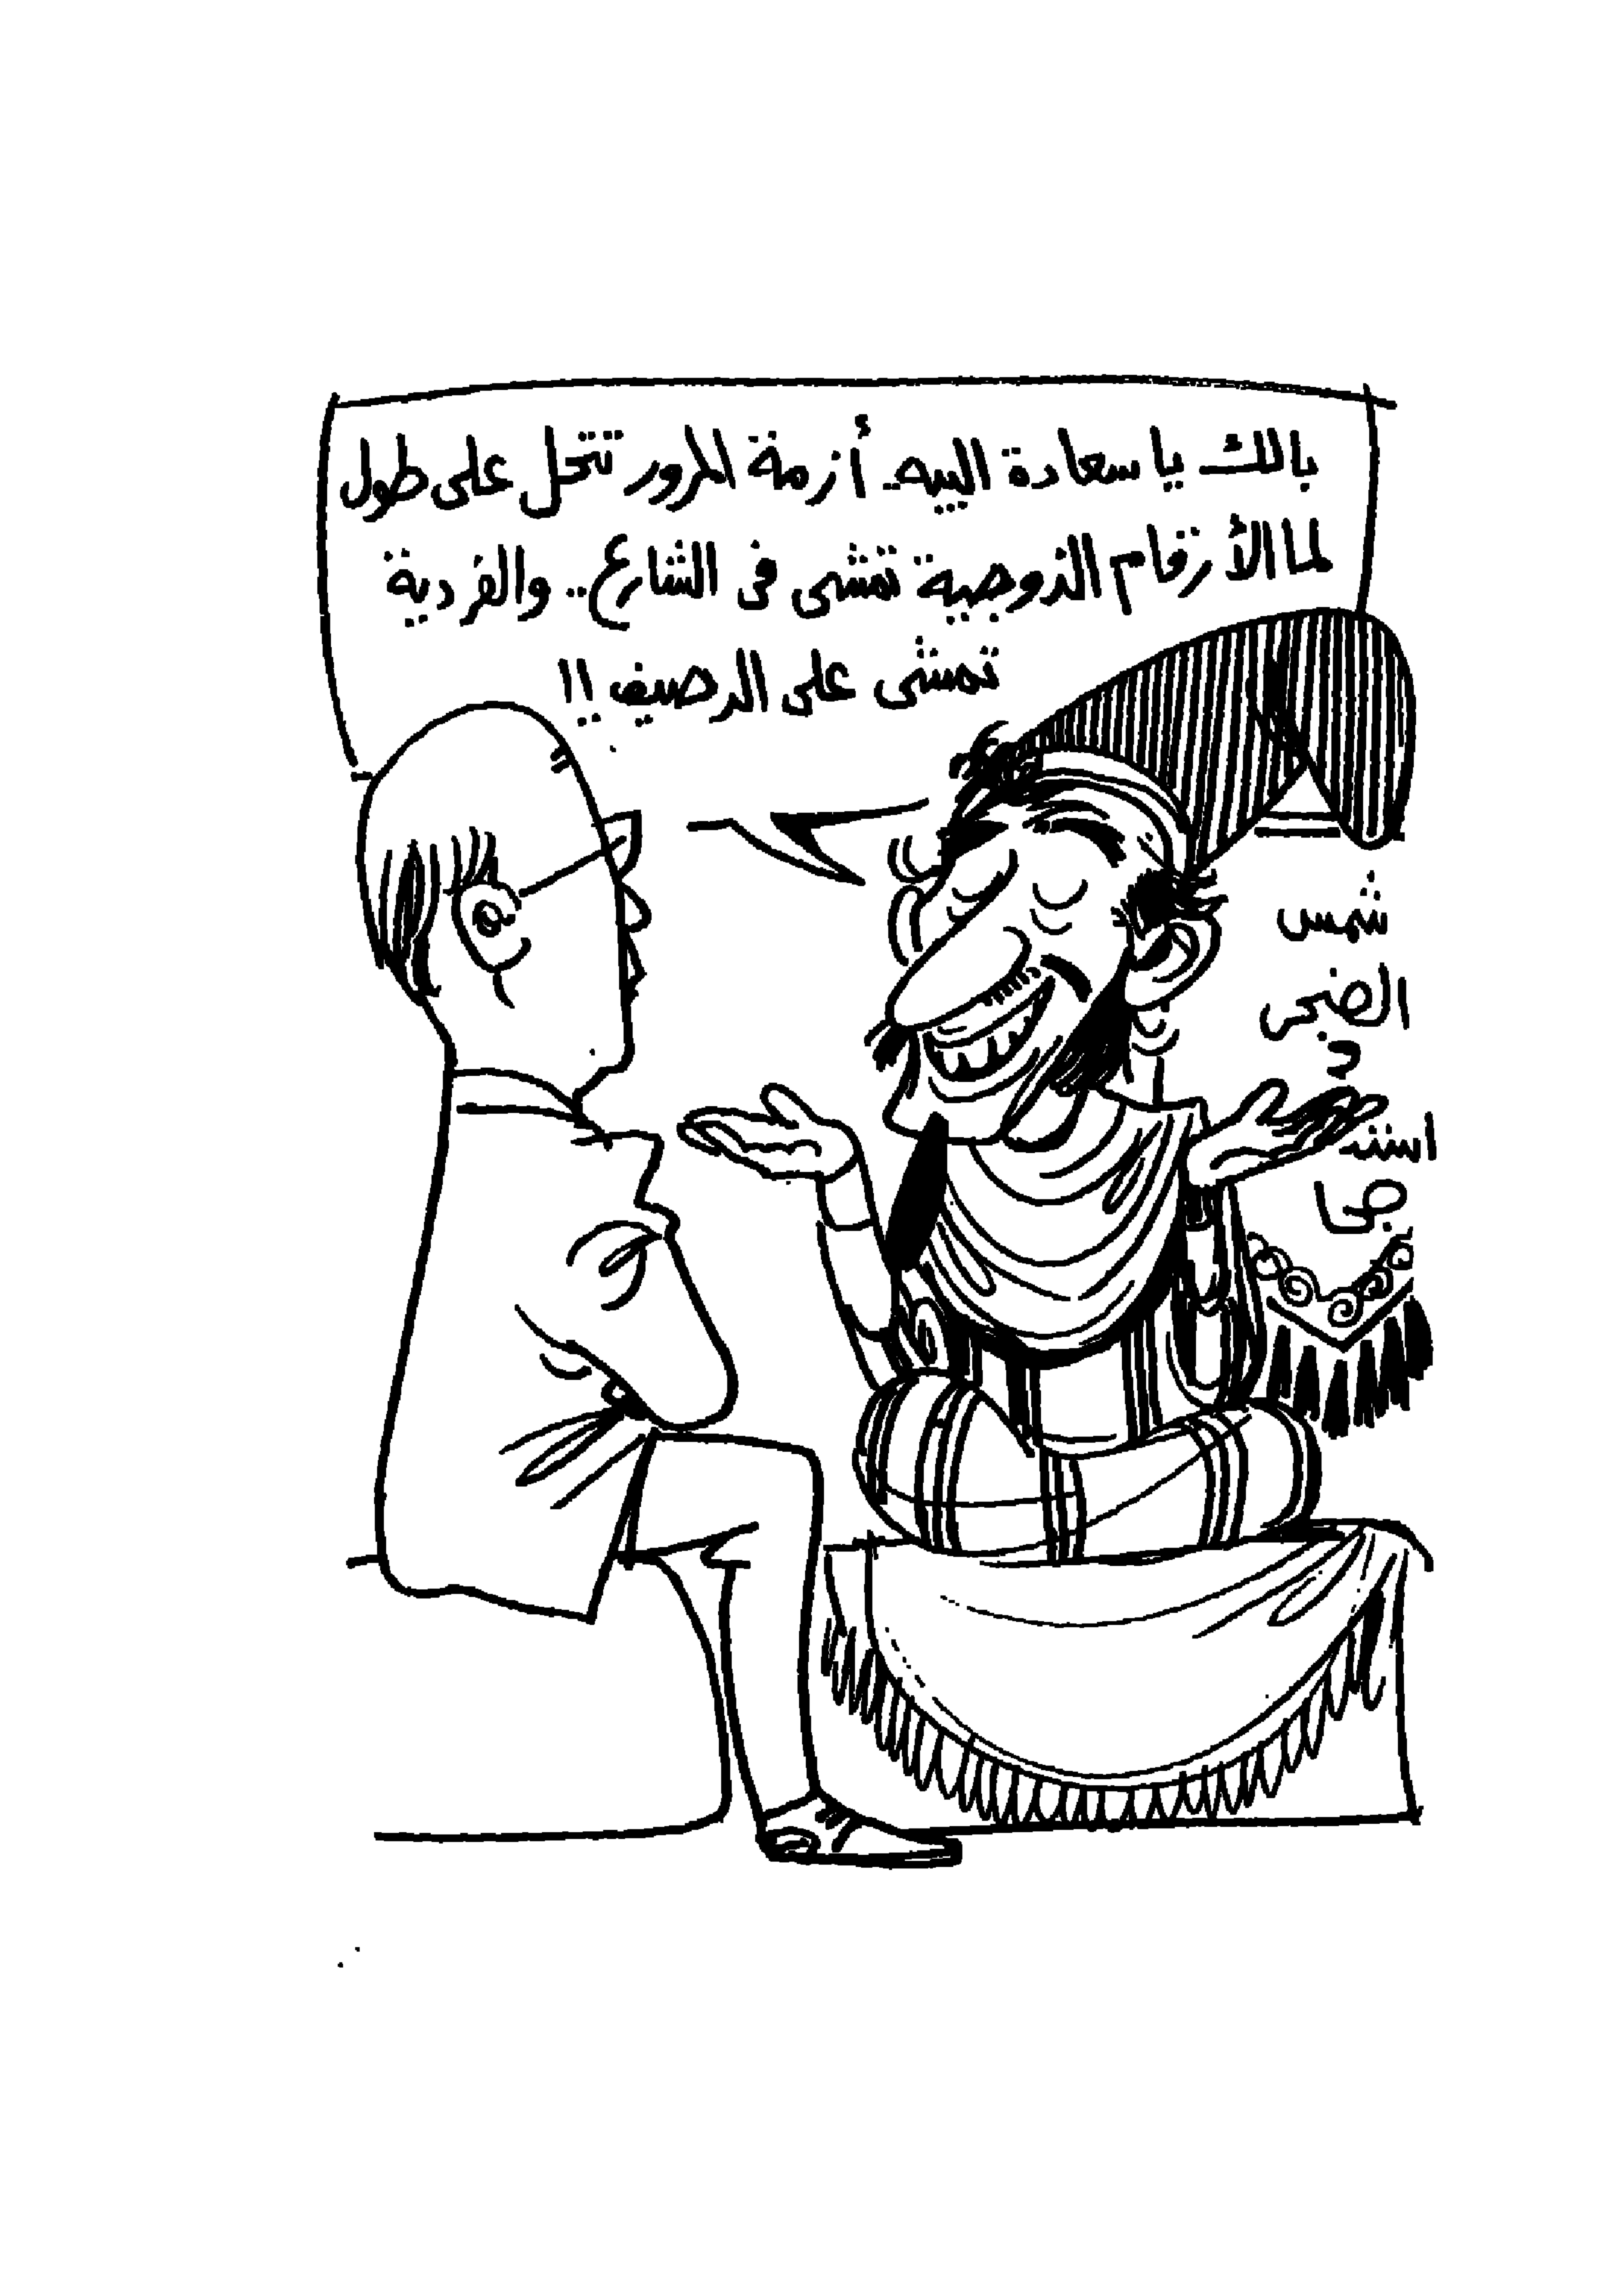 بالك يا سعادة البيه.. أزمة المرور تتحل على طول
لما الأرقام الزوجية تمشى فى الشارع.. والفردية
تمشى على الرصيف !!
شمس
الضحى